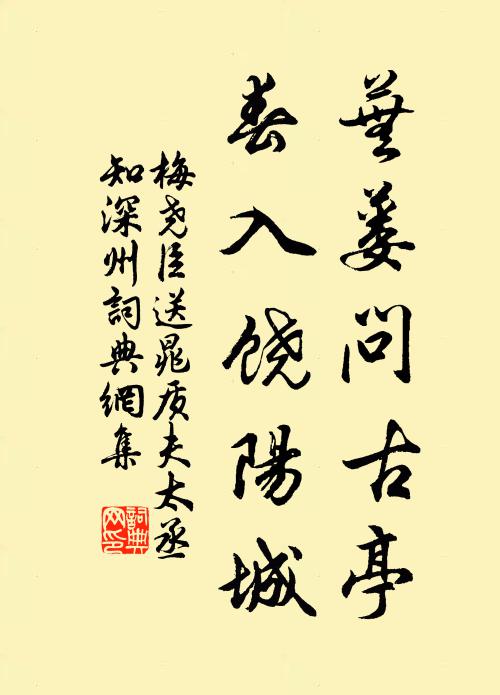 蕪蔞問古亭
春入饶陽城
梅尧臣送晁质夫太丞
知深州詞典網集
詞典
网印